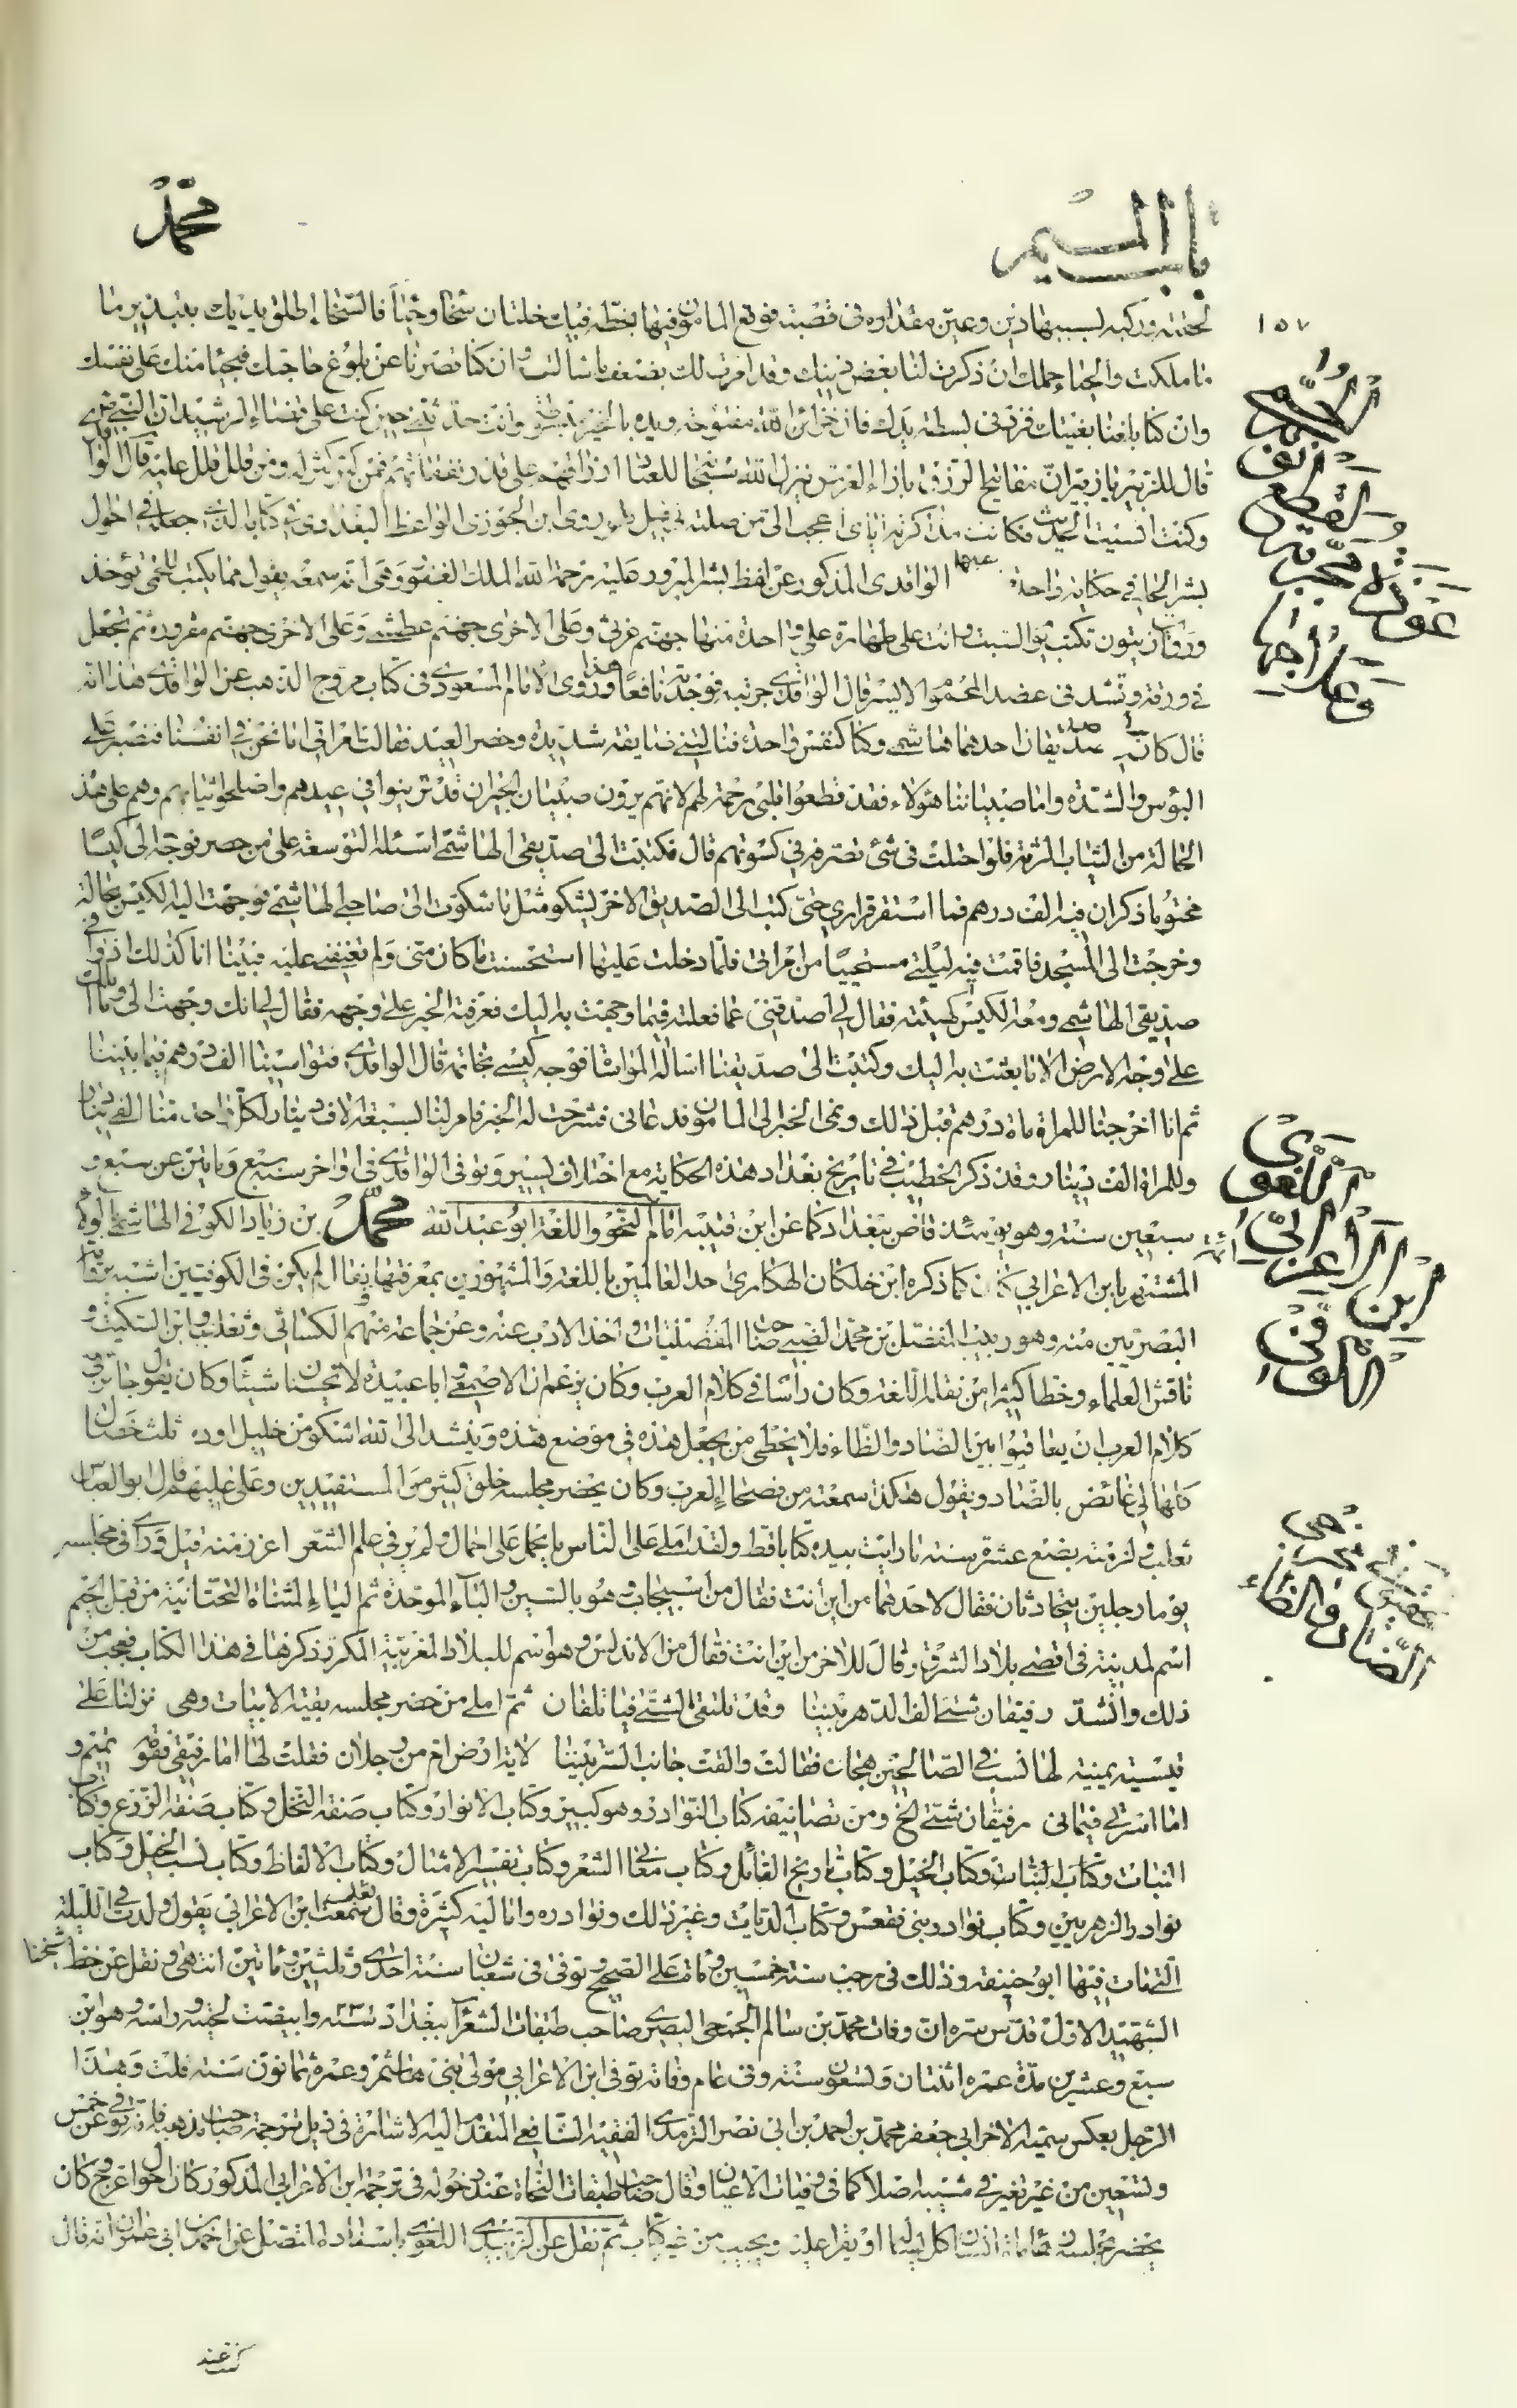 باب الميم
محمد
١٥٧
لحقته وركبه بسببها دين وعين مقداره في قصته فوقع المامون فيها بخطه فيك خلتان سخا وحيآء فالسّخاء اطلق يديك بتبذير ما
ما ملكت والحياء حملك ان ذكرت لنا بعض دينك وقد امرنا لك بضعف ما سالت وان كنا قصرنا عن بلوغ حاجتك فبجنايتك على نفسك
وان كنا بلغنا بغيتك فزد في بسطة يدك فان خزائن الله مفتوحة ويده بالخير مبسوطة وانت حدثتني حين كنت على قضاء الرشيد ان النبي ص
قال للزبير يا زبير ان مفاتيح الرزق بازاء العرش ينزل الله سبحانه للعباد ارزاقهم على قدر نفقاتهم فمن كثر كثر له ومن قلل قلل عليه قال الواقدي
وكنت انسيت الحديث فكانت مذاكرته اياى اعجب الى من صلته وروى ابن الجوزى الواعظ البغدادى في كتابه الذى جعله في احوال
بشر الحافي حكاية واحدة عنها الواقدى المذكور عن لفظ بشر المبرور عليه رحمة الله الملك الغفور وهى انه سمعه يقول مما يكتب للحمى يؤخذ
ورقات زيتون تكتب يوم السبت وانت على طهارة على واحدة منها جهنم غرثى وعلى الاخرى جهنم عطشى وعلى الاخرى جهنم مقرورة ثم تجعل
في ورقة وتشد في عضد المحموم الايسر قال الواقدى جربته فوجدته نافعا هذا وروى الامام المسعودى في كتاب مروج الذهب عن الواقدى هذا انه
قال كان لى صديقان احدهما هاشمى وكنا كنفس واحدة فنالتنى ضايقة شديدة وحضر العيد فقالت امراتى اما نحن في انفسنا فنصبر على
البؤس والشدة واما صبياننا هؤلاء فقد قطعوا قلبى رحمة لهم لانهم يرون صبيان الجيران قد تزينوا في عيدهم واصلحوا ثيابهم وهم على هذه
الحالة من الثياب الرثة فلو احتلت في شئ تصرفه في كسوتهم قال فكتبت الى صديقى الهاشمى اسئله التوسعة على من حضر فوجه الى كيسا
مختوما ذكر ان فيه الف درهم فما استقر قرارى حتى كتب الى الصديق الاخر يشكو مثل ما شكوت الى صاحبى الهاشمى فوجهت اليه الكيس بحالته
وخرجت الى المسجد فاقمت فيه ليلتى مستحييا من امراتى فلما دخلت عليها استحسنت ما كان منى ولم تعنفنى عليه فبينا انا كذلك اذ وافى
صديقى الهاشمى ومعه الكيس كهيئته فقال لى اصدقنى عما فعلته فيما وجهت به اليك فعرفته الخبر على وجهه فقال لى انك وجهت الى وما املك
على وجه الارض الا ما بعثت به اليك وكتبت الى صديقنا اسأله المواساة فوجه كيسى بخاتمه قال الواقدى فتواسينا الف درهم فيما بيننا
ثم انا اخرجنا للمراة مأة درهم قبل ذلك ونمى الخبر الى المامون فدعانى فشرحت له الخبر فامر لنا بسبعة الاف دينار لكل واحد منا الفى دينار
وللمراة الف دينار وقد ذكر الخطيب في تاريخ بغداد هذه الحكاية مع اختلاف يسير وتوفى الواقدى في اواخر سنة سبع ومايتين عن سبع و
سبعين سنة وهو يومئذ قاض ببغداد كما عن ابن قتيبة امام النحو واللغة ابو عبد الله محمد بن زياد الكوفى الهاشمى بالولاء
المشتهر بابن الاعرابى كان كما ذكره ابن خلكان الهكارى احد العالمين باللغة والمشهورين بمعرفتها يقال لم يكن في الكوفيين اشبه برواية
البصريين منه وهو ربيب المفضل بن محمد الضبى صاحب المفضليات واخذ الادب عنه وعن جماعة منهم الكسائى وثعلب وابن السكيت و
ناقش العلماء وخطا كثيرا من نقلة اللغة وكان راسا في كلام العرب وكان يزعم ان الاصمعى وابا عبيدة لا يحسنان شيئا وكان يقول جائز في
كلام العرب ان يعاقبوا بين الضاد والظاء فلا يخطى من يجعل هذه في موضع هذه وينشد الى الله اشكو من خليل اوده ثلث خصال
كلها لى غائض بالضاد ويقول هكذا سمعته من فصحاء العرب وكان يحضر مجلسه خلق كثير من المستفيدين وعلى عليهم قال ابو العباس
ثعلب ولزمته بضع عشرة سنة ما رايت بيده كتابا قط ولقد املى على الناس ما يحمل على اجمال ولم ير في علم الشعر اغزر منه قيل وراى في مجلسه
يوما رجلين يتحادثان فقال لاحدهما من اين انت فقال من اسبيجاب وهو بالسين والبآء الموحدة ثم الياء المثناة التحتانية من قبل الجيم
اسم لمدينة في اقصى بلاد الشرق وقال للاخر من اين انت فقال من الاندلس وهو اسم للبلاد المغربية المكرر ذكرها في هذا الكتاب فعجب من
ذلك وانشد رفيقان شتى الف الدهر بيننا وقد تلتقى الشتى فياتلفان ثم املى من حضر مجلسه بقية الابيات وهى نزلنا على
قيسية يمنية لها نسب في الصالحين هجان فقالت والقت جانب الستر بيننا لاية ارض ام من رجلان فقلت لها اما رفيقى فقومه تميم و
اما اسرتى فيمانى رفيقان شتى الخ ومن تصانيفه كتاب النوادر وهو كبير وكتاب الانوار وكتاب صفة النخل وكتاب صفة الزرع وكتاب
النبات وكتاب النبات وكتاب الخيل وكتاب تاريخ القبائل وكتاب معانى الشعر وكتاب تفسير الامثال وكتاب الالفاظ وكتاب نسب الخيل وكتاب
نوادر الزهريين وكتاب نوادر بنى فقعس وكتاب الذباب وغير ذلك ونوادره واماليه كثيرة وقال ثعلب سمعت ابن الاعرابى يقول ولدت في الليلة
التى مات فيها ابو حنيفة وذلك في رجب سنة خمسين ومأة على الصحيح وتوفى في شعبان سنة احدى وثلثين ومأتين انتهى ونقل عن خط شيخنا
الشهيد الاول قدس سره ان وفات محمد بن سالم الجمحى البصرى صاحب طبقات الشعرآء ببغداد سنة وابيضت لحيته وراسه وهو ابن
سبع وعشرين مدة عمره اثنتان وتسعون سنة وفى عام وفاته توفى ابن الاعرابى مولى بنى هاشم وعمره ثمانون سنة قلت وهذا
الرجل بعكس سميه الاخر ابى جعفر محمد بن احمد بن ابى نصر الترمذى الفقيه الشافعى المتقدم اليه الاشارة في ذيل ترجمة صاحب مذهبه فانه توفى عن خمس
وتسعين من غير تغير في مشيبه اصلا كما في وفيات الاعيان وقال صاحب طبقات النحاة عند دخوله في ترجمة ابن الاعرابى المذكور كان احول اعرج وكان
يحضر مجلسه زهاء مائة انسان كل يسأله او يقرا عليه ويجيب من غير كتاب ثم نقل عن الزبيدى اللغوى باسناده المتصل عن احمد بن ابى عمران انه قال
كنت عند
الرقعتين
اللغوى
ابن الاعرابى
الكوفى
الضاد والظاء